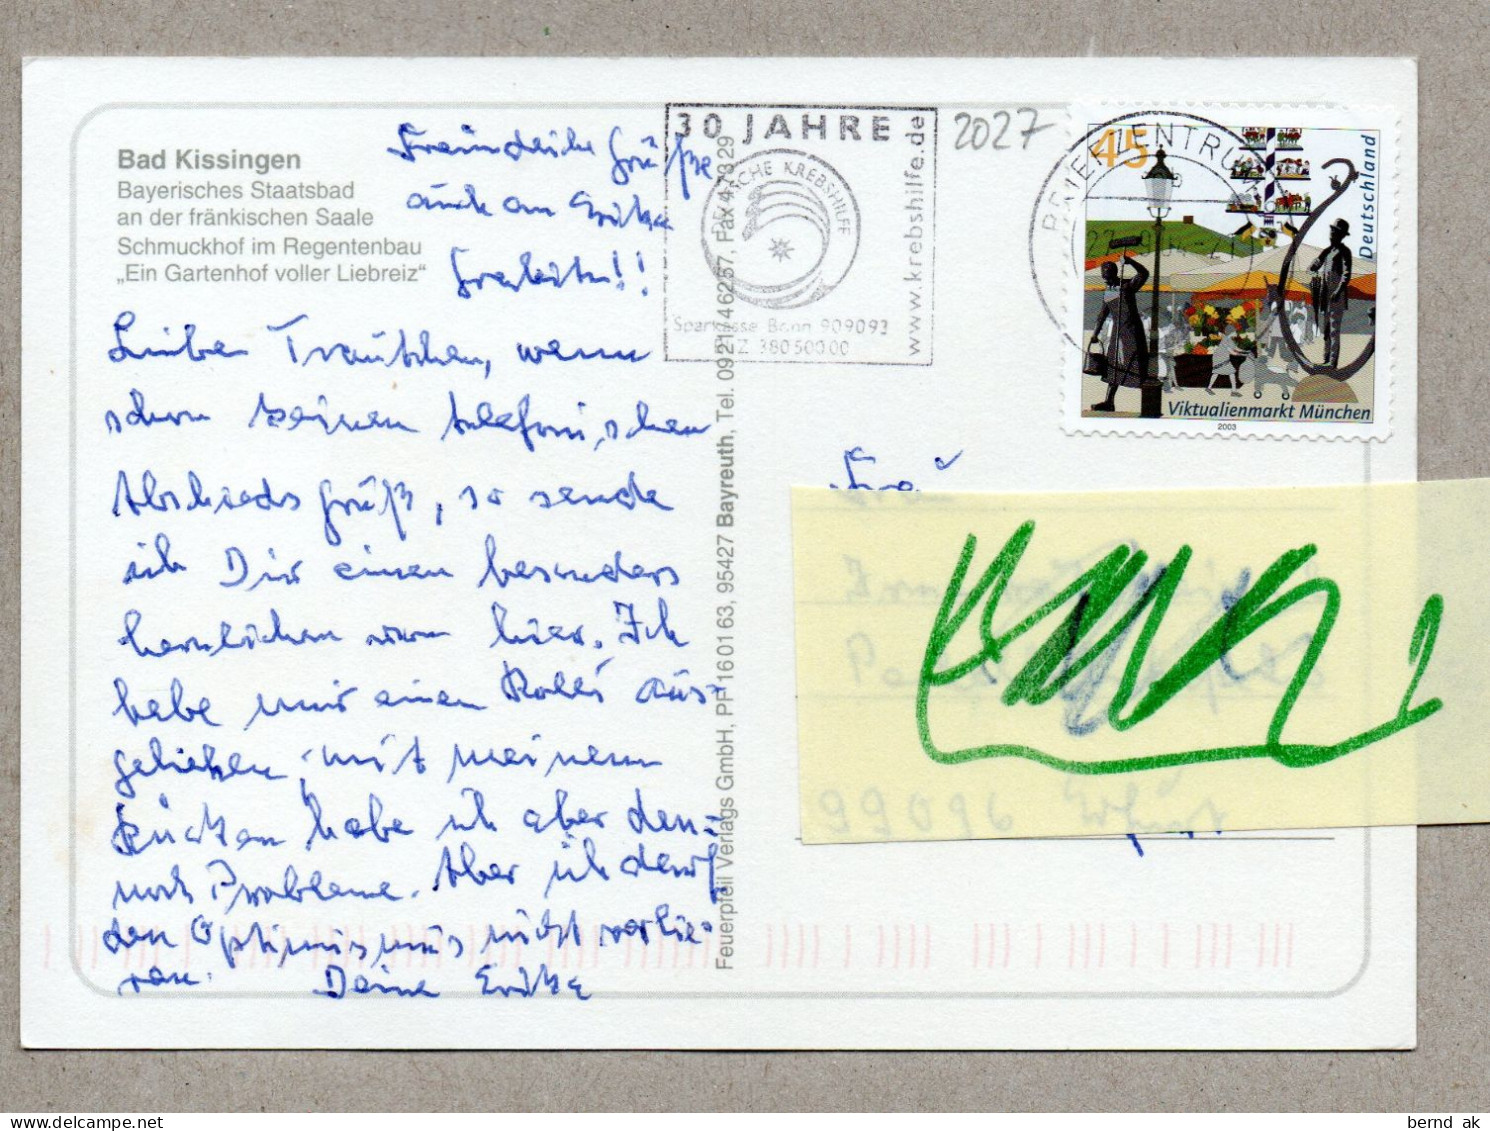 Bad Kissingen
Bayerisches Staatsbad
an der fränkischen Saale
Schmuckhof im Regentenbau
„Ein Gartenhof voller Liebreiz“
Freundliche Grüße
auch an Erika
Liebes Trautchen, wenn
schon keinen telefonischen
Abschiedsgruß, so sende
ich Dir einen besonders
herzlichen von hier. Ich
habe mir einen Rolli aus-
geliehen, mit meinem
Rücken habe ich aber den-
noch Probleme. Aber ich darf
den Optimismus nicht verlie-
ren. Deine Erika
Feuerpfeil Verlags GmbH, PF 16 01 63, 95427 Bayreuth, Tel. 0921/46257, Fax 47329
30 JAHRE
DEUTSCHE KREBSHILFE
Sparkasse Bonn 909093
BLZ 38050000
www.krebshilfe.de
2027
BRIEFZENTRUM
45
Deutschland
Viktualienmarkt München
2003
Frau
bernd ak